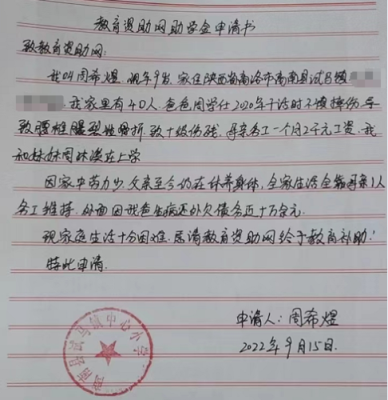 教育资助网助学金申请书
致教育资助网:
我叫周希煜,现年9岁,家住陕西省商洛市商南县试马镇
我家里有4口人,爸爸周学仕2020年干活时不慎摔伤,导
致腰椎爆裂性骨折致十级伤残,母亲务工一个月2千元工资,我
和妹妹周沐溪在上学
因家中劳力少,父亲至今仍在休养身体,全家生活全靠母亲1人
务工维持,外面因我爸生病还外欠债务近十万余元.
现家庭生活十分困难,恳请教育资助网给予教育补助!
特此申请.
申请人:周希煜
2022年9月15日.
商南县试马镇中心小学